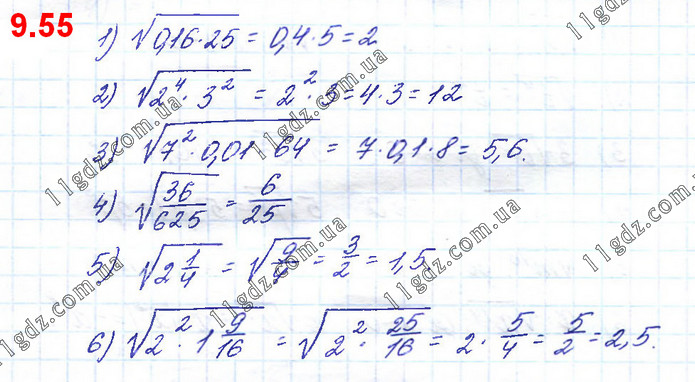 9.55
1) √0,16·25 = 0,4·5 = 2
2) √2⁴·3² = 2²·3 = 4·3 = 12
3) √7²·0,01·64 = 7·0,1·8 = 5,6.
4) √36/625 = 6/25
5) √2 1/4 = √9/4 = 3/2 = 1,5.
6) √2²·1 9/16 = √2²·25/16 = 2·5/4 = 5/2 = 2,5.
11gdz.com.ua
11gdz.com.ua
11gdz.com.ua
11gdz.com.ua
11gdz.com.ua
11gdz.com.ua